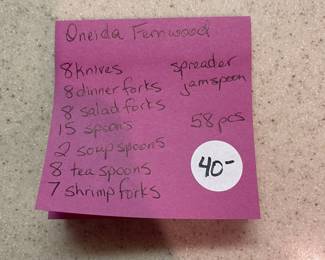 Oneida Fernwood
8 knives
8 dinner forks
8 salad forks
15 spoons
2 soup spoons
8 tea spoons
7 shrimp forks
spreader
jam spoon
58 pcs
40-